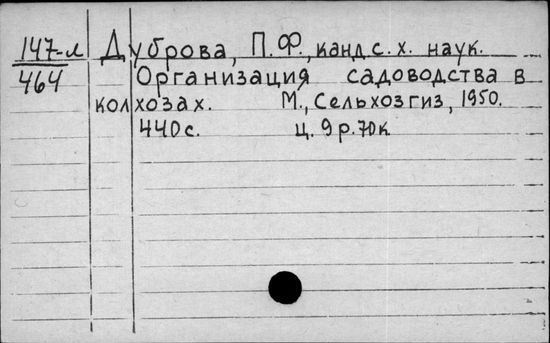 147-л Дуброва, П.Ф., канд. с. х. наук.
464 Организация садоводства в
колхозах. М., Сельхозгиз, 1950.
440 с. ц. 9 р. 70 к